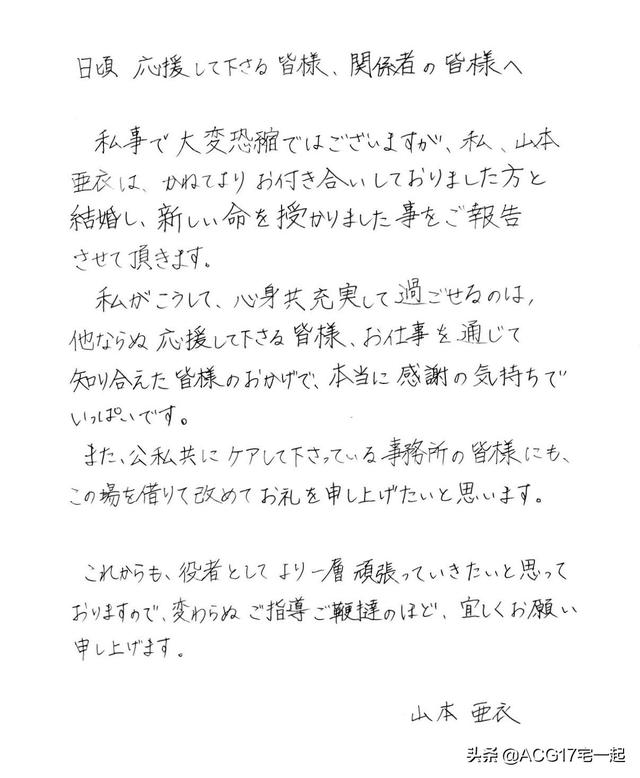 日頃 応援して下さる皆様、関係者の皆様へ
私事で大変恐縮ではございますが、私、山本
亜衣は、かねてよりお付き合いしておりました方と
結婚し、新しい命を授かりました事をご報告
させて頂きます。
私がこうして、心身共充実して過ごせるのは、
他ならぬ応援して下さる皆様、お仕事を通じて
知り合えた皆様のおかげで、本当に感謝の気持ちで
いっぱいです。
また、公私共にケアして下さっている事務所の皆様にも、
この場を借りて改めてお礼を申し上げたいと思います。
これからも、役者としてより一層頑張っていきたいと思って
おりますので、変わらぬご指導ご鞭撻のほど、宜しくお願い
申し上げます。
山本 亜衣
头条 @ACG17宅一起